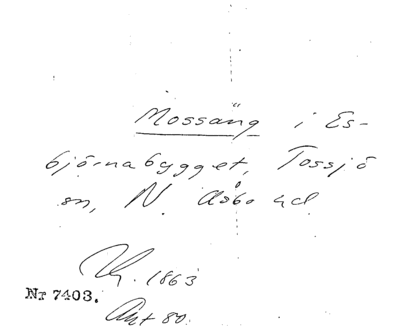 Mossäng i Es-
björnabygget, Tossjö
sn, N. Åsbo hd
Uh. 1863
Nr 7403.
Akt 80.